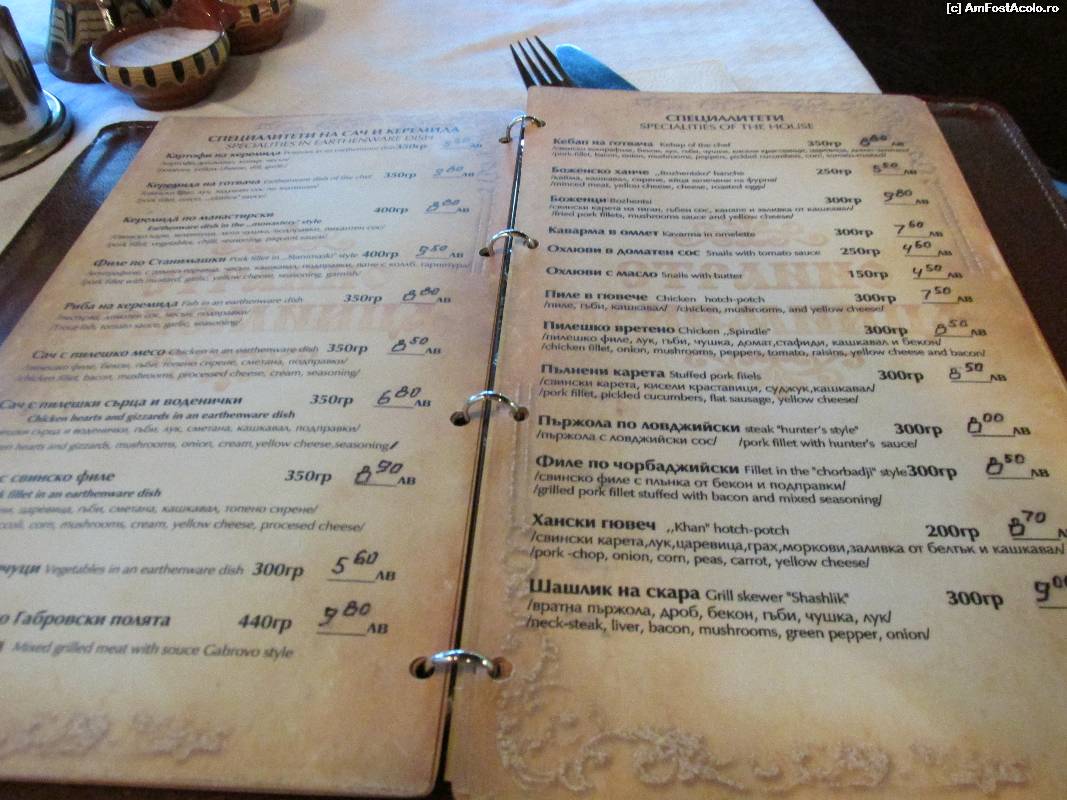 [c] AmFostAcolo.ro
СПЕЦИАЛИТЕТИ НА САЧ И КЕРЕМИДА
SPECIALITIES IN EARTHENWARE DISH
Картофи на керемида 350гр
Керемида на готвача Earthenware dish of the chef 350гр
Керемида по манастирски 400гр 8 80 ЛВ
Earthenware dish in the „monastery" style
/pork fillet, vegetables, chilli, seasoning, piquant sauce/
Филе по Станимашки Pork fillet in „Stanimashki" style 400гр 9 50 ЛВ
Риба на керемида Fish in earthenware dish 350гр 8 80 ЛВ
/Trout-fish, tomato sauce, garlic, seasoning/
Сач с пилешко месо Chicken in an earthenware dish 350гр 8 50 ЛВ
/пилешко филе, бекон, гъби, топено сирене, сметана, подправки/
/chicken fillet, bacon, mushrooms, processed cheese, cream, seasoning/
Сач с пилешки сърца и воденички 350гр 6 80 ЛВ
Chicken hearts and gizzards in an earthenware dish
сърца и воденички, гъби, лук, сметана, кашкавал, подправки/
hearts and gizzards, mushrooms, onion, cream, yellow cheese, seasoning/
с свинско филе 350гр 8 90 ЛВ
fillet in an earthenware dish
царевица, гъби, сметана, кашкавал, топено сирене/
corn, mushrooms, cream, yellow cheese, procesed cheese/
Vegetables in an earthenware dish 300гр 5 60 ЛВ
о Габровски полята 440гр 9 80 ЛВ
Mixed grilled meat with souce Gabrovo style
СПЕЦИАЛИТЕТИ
SPECIALITIES OF THE HOUSE
Кебап на готвача Kebap of the chef 350гр
/pork fillet, bacon, onion, mushrooms, peppers, pickled cucumbers, corn, tomato-mustard/
Боженско ханче „Bozhentsko" hanche 250гр
/кайма, кашкавал, сирене, яйца запечени на фурна/
/minced meat, yellow cheese, cheese, roasted eggs/
Боженци Bozhentsi 300гр 9 80 ЛВ
/свинско карета на тиган, гъбен сос, канапе и заливка от кашкавал/
/fried pork fillets, mushrooms sauce and yellow cheese/
Каварма в омлет Kavarma in omelette 300гр 7 60 ЛВ
Охлюви в доматен сос Snails with tomato sauce 250гр 4 60 ЛВ
Охлюви с масло Snails with butter 150гр 4 50 ЛВ
Пиле в гювече Chicken hotch-potch 300гр 7 50 ЛВ
/пиле, гъби, кашкавал/ /chicken, mushrooms, and yellow cheese/
Пилешко вретено Chicken „Spindle" 300гр 8 50 ЛВ
/пилешко филе, лук, гъби, чушка, домат,стафиди, кашкавал и бекон/
/chicken fillet, onion, mushrooms, peppers, tomato, raisins, yellow cheese and bacon/
Пълнени карета Stuffed pork filels 300гр 8 50 ЛВ
/свински карета, кисели краставици, суджук,кашкавал/
/pork fillet, pickled cucumbers, flat sausage, yellow cheese/
Пържола по ловджийски steak "hunter's style" 300гр 8 00 ЛВ
/пържола с ловджийски сос/ /pork fillet with hunter's sauce/
Филе по чорбаджийски Fillet in the "chorbadji" style 300гр 8 50 ЛВ
/свинско филе с плънка от бекон и подправки/
/grilled pork fillet stuffed with bacon and mixed seasoning/
Хански гювеч „Khan" hotch-potch 200гр 8 70
/свински карета,лук,царевица,грах,моркови,заливка от белтък и кашкавал/
/pork -chop, onion, corn, peas, carrot, yellow cheese/
Шашлик на скара Grill skewer "Shashlik" 300гр 9 00
/вратна пържола, дроб, бекон, гъби, чушка, лук/
/neck-steak, liver, bacon, mushrooms, green pepper, onion/